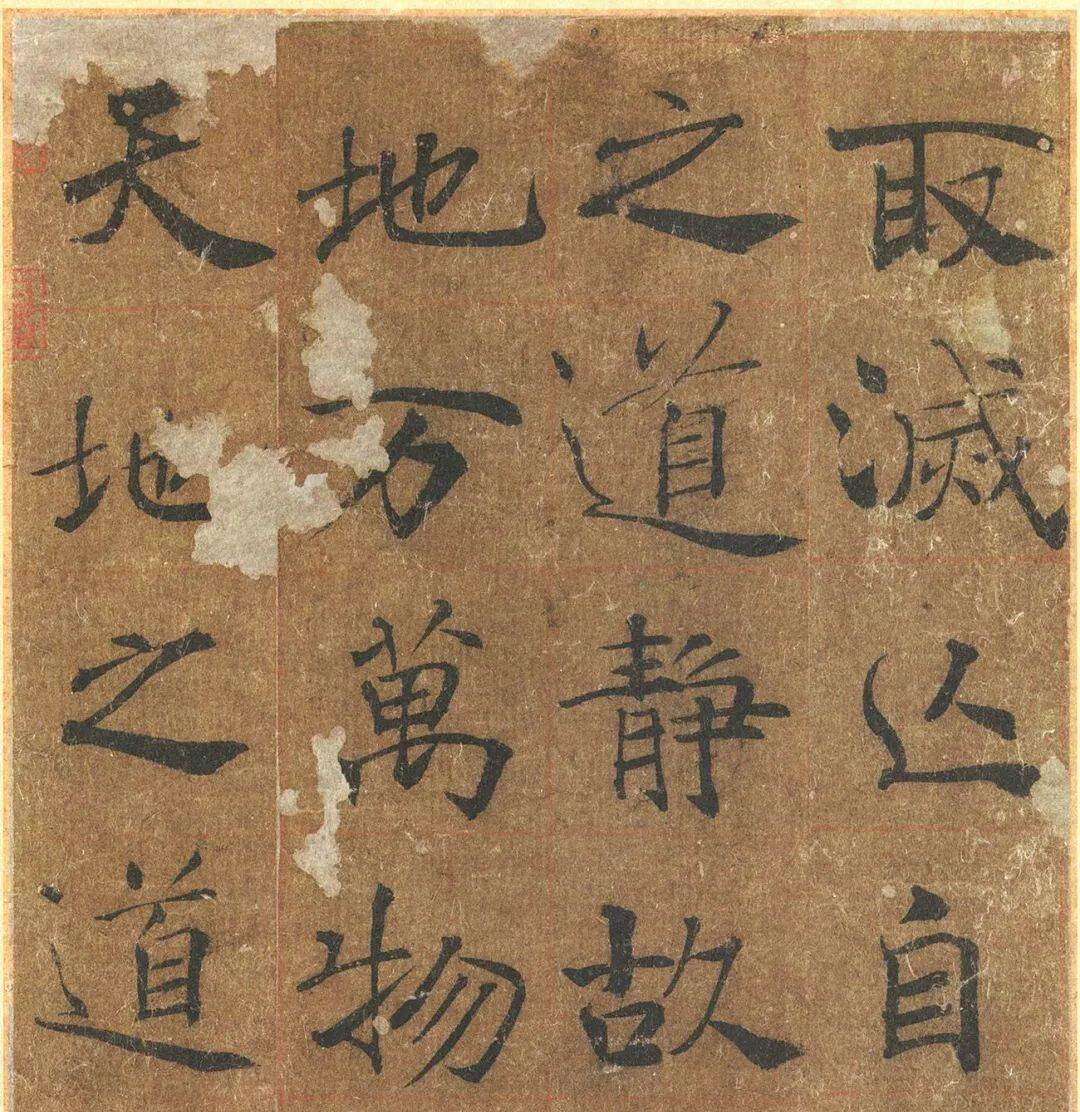 取滅亾自
之道静故
地万萬物
天地之道